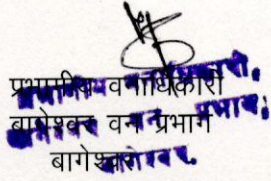 प्रभागीय वनाधिकारी
बागेश्वर वन प्रभाग
बागेश्वर